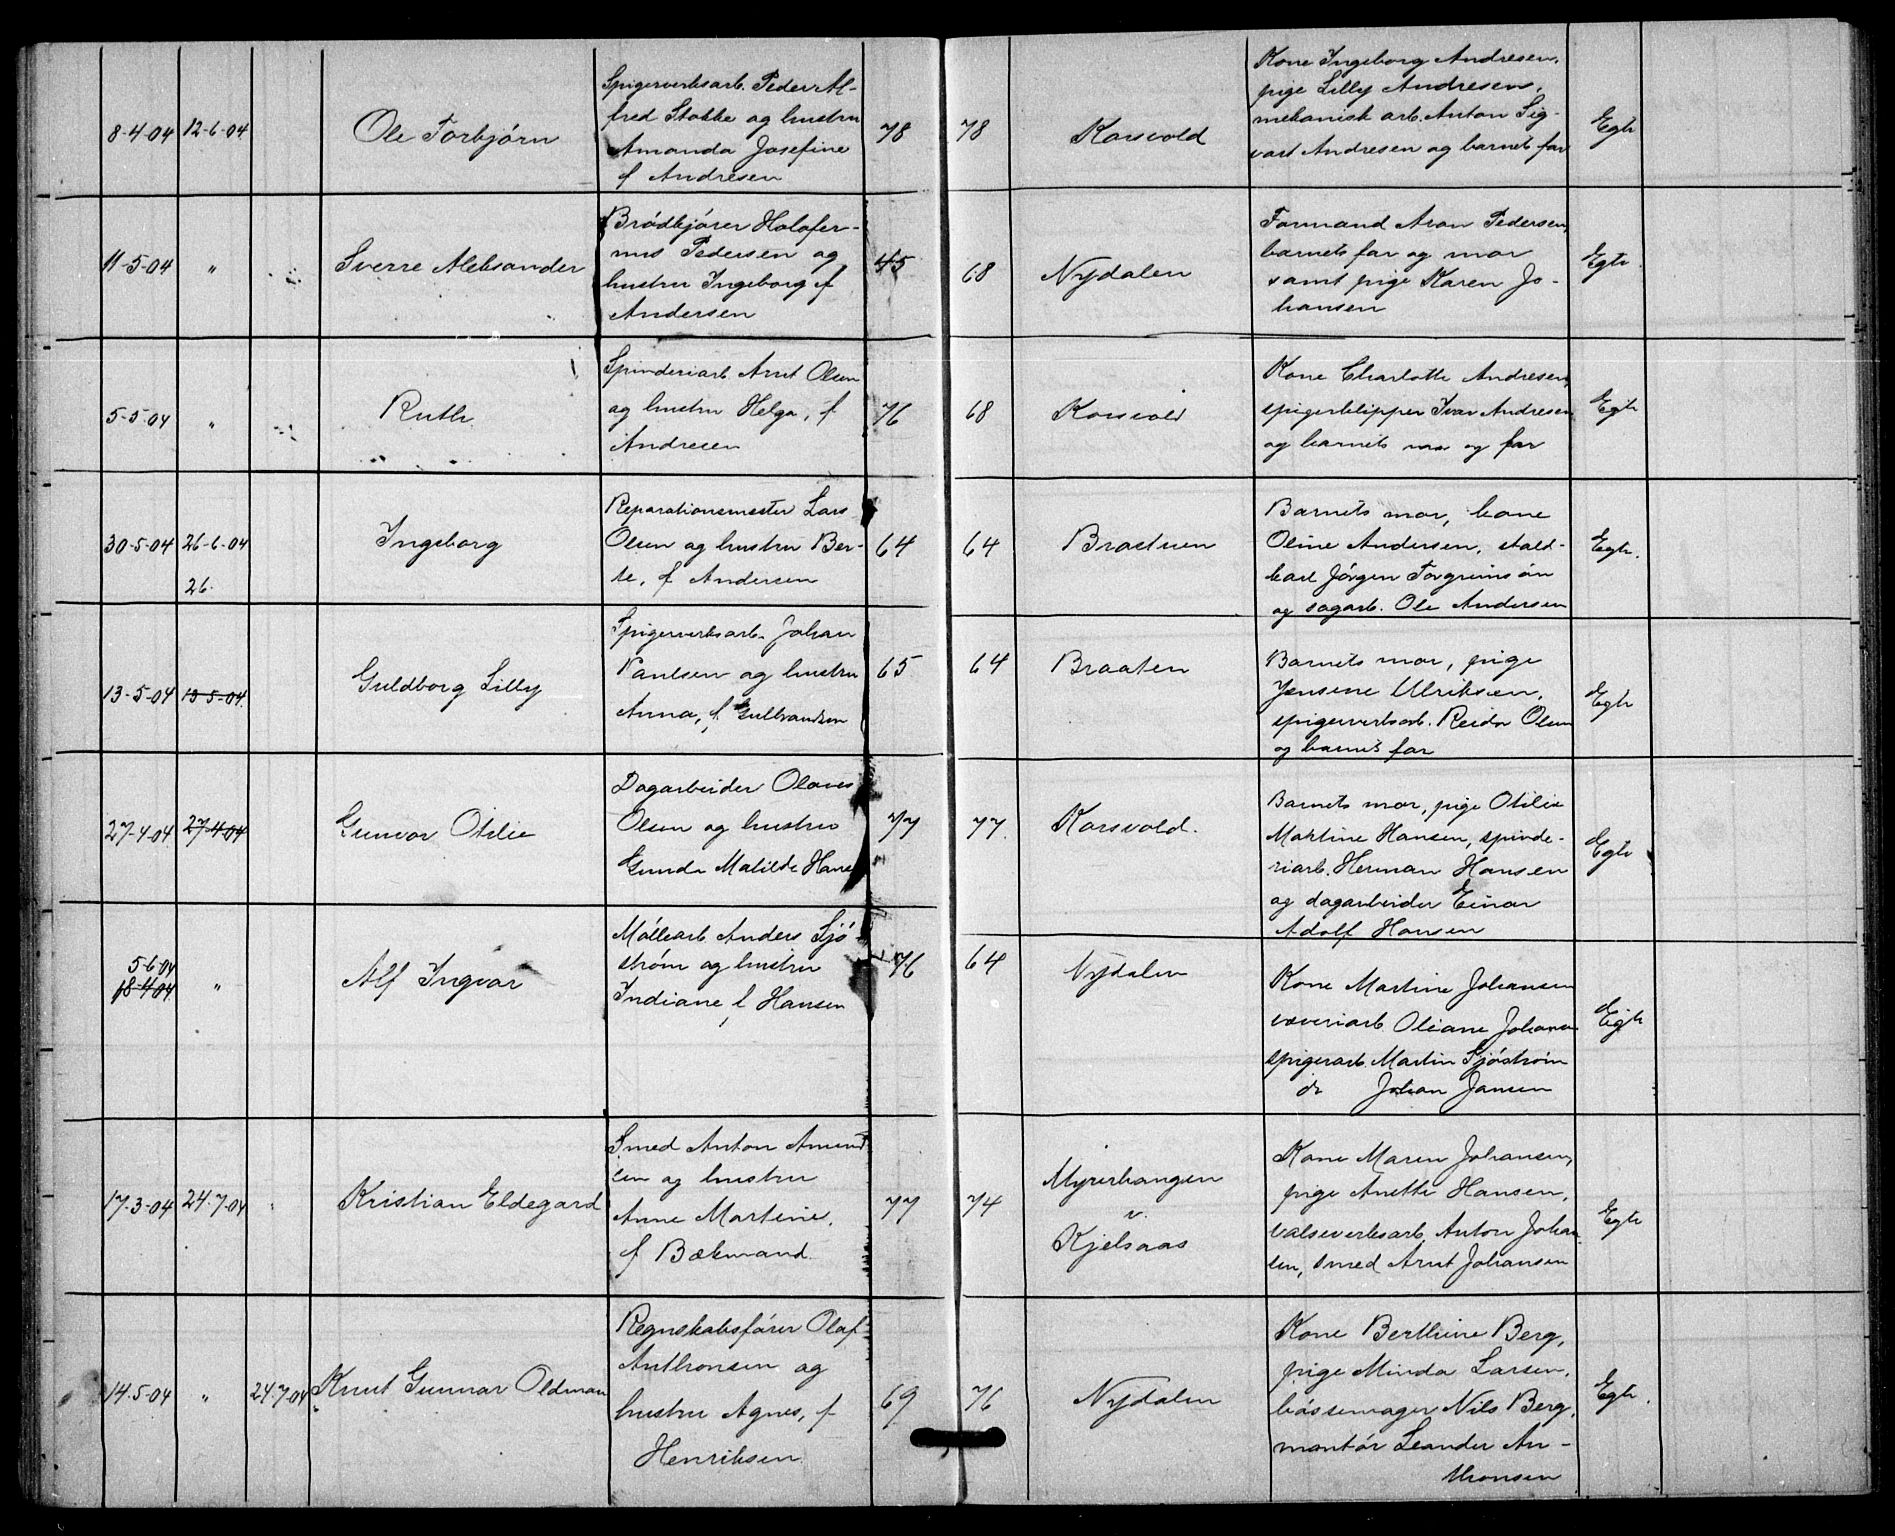 8-4-04 12-6-04 Ole Torbjörn
Spigerverksarb. Peder Al-
fred Stokke og hustru
Amanda Josefine
f Andresen
78 78 Korsvold
Kone Ingeborg Andresen,
pige Lilly Andresen,
mekanisk arb. Anton Sig-
vart Andresen og barnets far
Egte
11-5-04 " Sverre Aleksander
Brödkjörer Holofer-
nus Pedersen og
hustru Ingeborg f
Andersen
45 68 Nydalen
Formand Aron Pedersen
barnets far og mor
samt pige Karen Jo-
hansen
Egte
5-5-04 " Ruth
Spinderiarb. Arnt Olsen
og hustru Helga, f
Andresen
76 68 Korsvold
Kone Charlotte Andresen,
spigerklipper Ivar Andresen
og barnets mor og far
Egte
30-5-04 26-6-04 Ingeborg
26.
Reparationsmester Lars
Olsen og hustru Ber-
te, f Andersen
64 64 Brostuen
Barnets mor, kone
Oline Andersen, stald-
karl Jörgen Torgrimsön
og sagarb. Ole Andersen
Egte.
13-5-04 13-5-04. Guldborg Lilly
Spigerverksarb. Johan
Paulsen og hustru
Anna, f. Gulbrandsen
65 64 Braaten
Barnets mor, pige
Jensine Ulriksen,
spigerverksarb. Reidar Olsen
og barnets far
Egte
27-4-04 27-4-04 Gunvor Otilie
Dagarbeider Olaves
Olsen og hustru
Gunda Matilde Hans
77 77. Korsvold.
Barnets mor, pige Otilie
Martine Hansen, spinde-
riarb. Herman Hansen
og dagarbeider Einar
Adolf Hansen
Egte
5-6-04
18-4-04 " Alf Ingvar
Möllearb Anders Sjö-
ström og hustru
Indiane f Hansen
76 64 Nydalen
Kone Martine Johansen
væveriarb Oliane Johansen
spigerarb. Martin Sjöström
do Johan Jansen
Egte
17-3-04 24-7-04 Kristian Eldegard
Smed Anton Amund
sen og hustru
Anne Martine,
f Bækmand.
77 74 Myrerhaugen
v.
Kjelsaas
Kone Maren Johansen,
pige Anette Hansen,
valseverksarb. Anton Johan-
sen, smed Arnt Johansen
Egte
14-5-04 " 24-7-04 Knut Gunnar Oldman
Regnskabsförer Olaf
Anthonsen og
hustru Agnes, f
Henriksen.
69 76 Nydalen
Kone Berthine Berg,
pige Minda Larsen,
bössemager Nils Berg,
montör Leander An-
thonsen
Egte.